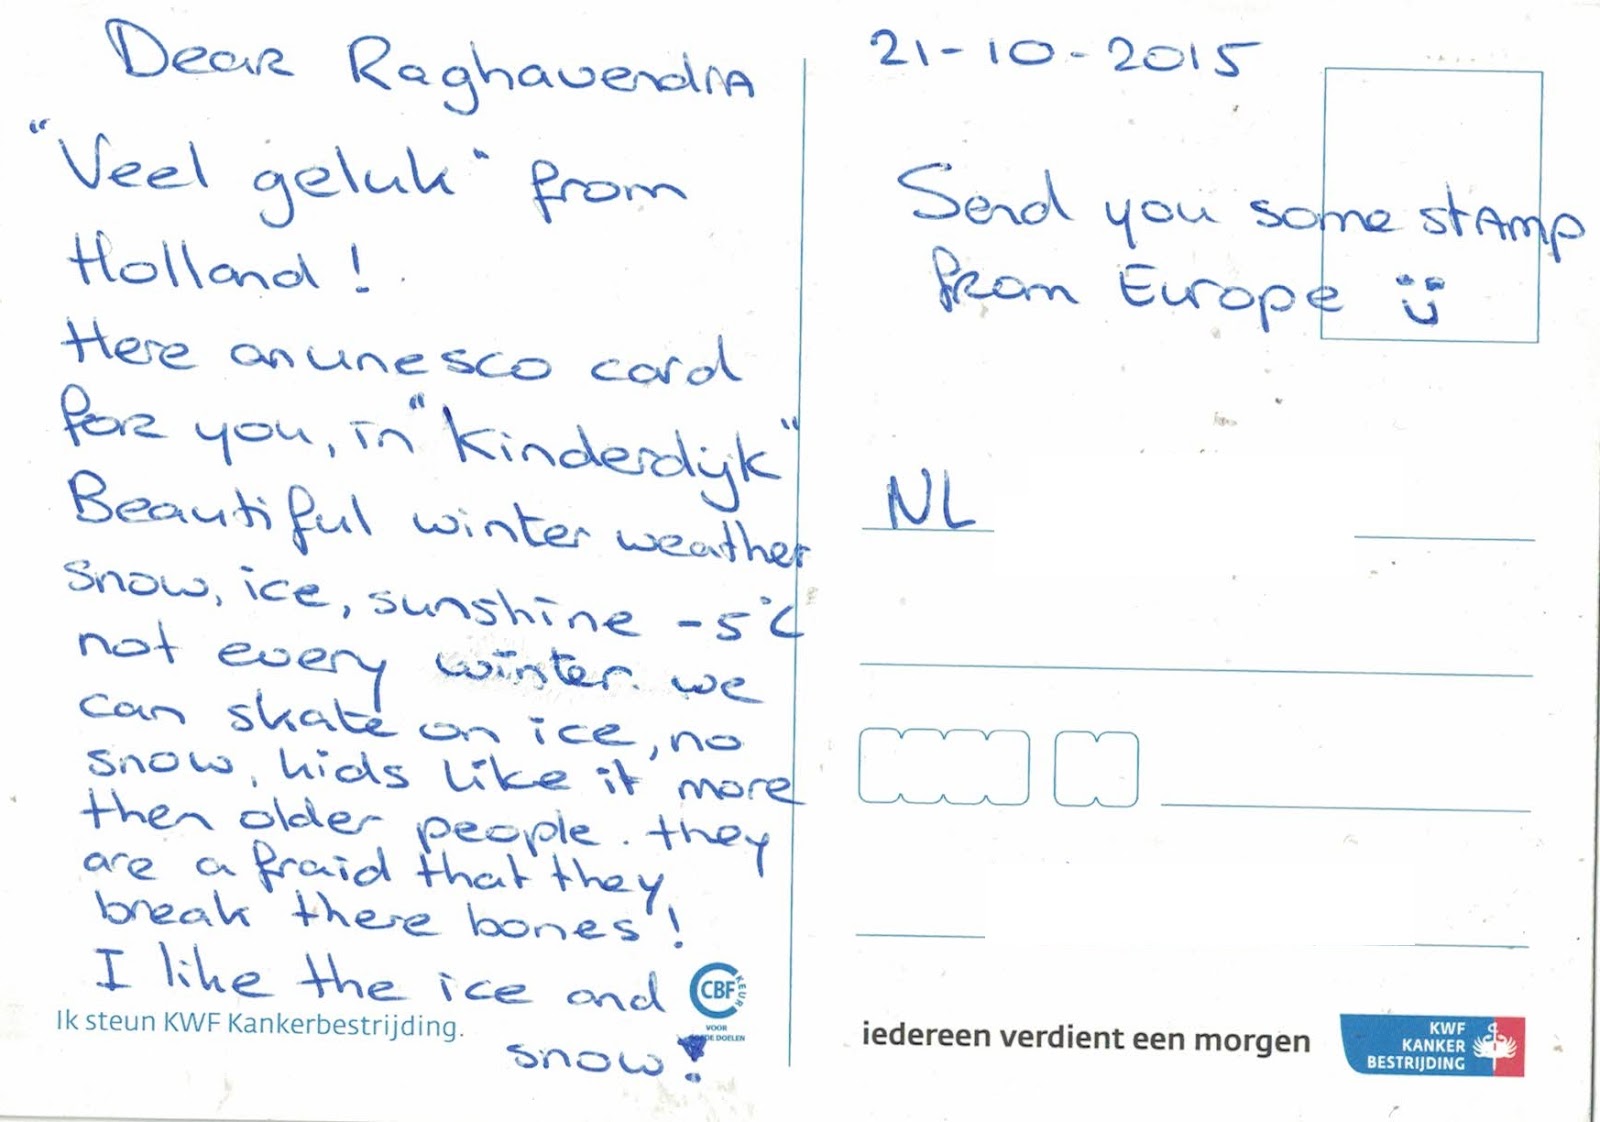 Dear Raghavendra
"Veel geluk" from
Holland!
Here an unesco card
for you, in "Kinderdijk"
Beautiful winter weather
snow, ice, sunshine -5°C
not every winter. we
can skate on ice, no
snow, kids like it more
then older people. they
are a fraid that they
break there bones!
I like the ice and
snow!
Ik steun KWF Kankerbestrijding.
CBF
KEUR
VOOR
DOELEN
21-10-2015
Send you some stamp
from Europe ü
NL
iedereen verdient een morgen
KWF
KANKER
BESTRIJDING